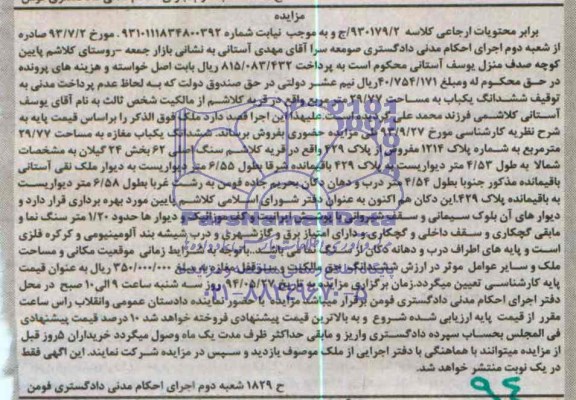 مزایده
برابر محتویات ارجاعی کلاسه ۹۳۰۱۷۹/۲/ج و به موجب نیابت شماره ۹۳۱۰۱۱۱۸۳۴۸۰۰۳۹۲ . مورخ ۹۳/۷/۲ صادره
از شعبه دوم اجرای احکام مدنی دادگستری صومعه سرا آقای مهدی آستانی به نشانی بازار جمعه -روستای کلاشم پایین
کوچه صدف منزل یوسف آستانی محکوم است به پرداخت ۸۱۵/۰۸۳/۴۳۲ ریال بابت اصل خواسته و هزینه های پرونده
در حق محکوم له ومبلغ ۴۰/۷۵۴/۱۷۱ ریال نیم عشر دولتی در حق صندوق دولت که به لحاظ عدم پرداخت مدنی به
توقیف ششدانگ یکباب به مساحت ۲۹/۷۷ واقع در قریه کلاشم از مالکیت شخص ثالث به نام آقای یوسف
آستانی کلاشمی فرزند محمد علی گردیده است علیهذا این اجرا قصد دارد ملک فوق الذکر را براساس قیمت پایه به
شرح نظریه کارشناسی مورخ ۹۳/۹/۲۷ طی مزایده حضوری بفروش برساند. ششدانگ یکباب مغازه به مساحت ۲۹/۷۷
مترمربع به شماره پلاک ۱۲۱۴ مفروز از پلاک ۴۲۹ واقع در قریه کلاشم سنگ اصلی ۶۲ بخش ۲۴ گیلان به مشخصات
شمالا به طول ۴/۵۳ متر دیواریست به پلاک ۴۲۹ باقیمانده شرقا بطول ۶/۵۵ متر دیواریست به دیوار ملک نقی آستانی
باقیمانده مذکور جنوبا بطول ۴/۵۴ متر درب و دهان دکان بحریم جاده فومن به رشت غربا بطول ۶/۵۸ متر دیواریست
به باقیمانده پلاک ۴۲۹.این دکان هم اکنون به عنوان دفتر شورای اسلامی کلاشم پایین مورد بهره برداری قرار دارد و
دیوار های آن بلوک سیمانی و سقف شیروانی با پوشش ایرانیت و کف موزائیک و دیوار ها حدود ۱/۲۰ متر سنگ نما و
مابقی گچکاری و سقف داخلی و گچکاری و دارای امتیاز برق و گازشهری و درب شیشه بند آلومینیومی و کرکره فلزی
است و پایه های اطراف درب و دهانه دکان از سنگ نما می باشد. باتوجه به شرایط زمانی موقعیت مکانی و مساحت
ملک و سایر عوامل موثر در ارزش ششدانگ عین والمکان و سرقفل مغازه به مبلغ ۳۵۰/۰۰۰/۰۰۰ ریال به عنوان قیمت
پایه کارشناسی تعیین میگردد.زمان برگزاری مزایده به تاریخ ۹۴/۰۵/۲۰ روز سه شنبه ساعت ۹ الی ۱۰ صبح در محل
دفتر اجرای احکام مدنی دادگستری فومن برگزار میباشد حضور نماینده دادستان عمومی وانقلاب راس ساعت
مقرر از قیمت پایه ارزیابی شده شروع و به بالاترین قیمت پیشنهادی فروخته خواهد شد ۱۰ درصد قیمت پیشنهادی
فی المجلس بحساب سپرده دادگستری واریز و مابقی حداکثر ظرف مدت یک ماه وصول میگردد خریداران ۵ روز قبل
از مزایده میتوانند با هماهنگی با دفتر اجرایی از ملک موصوف بازدید و سپس در مزایده شرکت نمایند. این آگهی فقط
در یک نوبت منتشر خواهد شد.
ح ۱۸۲۹ شعبه دوم اجرای احکام مدنی دادگستری فومن
۹۴